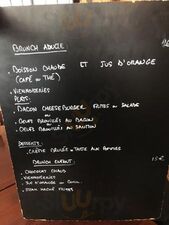 BRUNCH ADULTE
• BOISSON CHAUDE ET JUS D'ORANGE
(CAFÉ OU THÉ)
• VIENNOISERIES
PLATS:
• BACON CHEESEBURGER FRITES OU SALADE
OU
• OEUFS BROUILLÉS AU BACON
OU
• OEUFS BROUILLÉS AU SAUMON
DESSERTS:
• CRÈME BRULÉE OU TARTE AUX POMMES
BRUNCH ENFANT: 15€
• CHOCOLAT CHAUD
• VIENNOISERIES
• JUS D'ORANGE OU
• STEAK HACHÉ FRITES